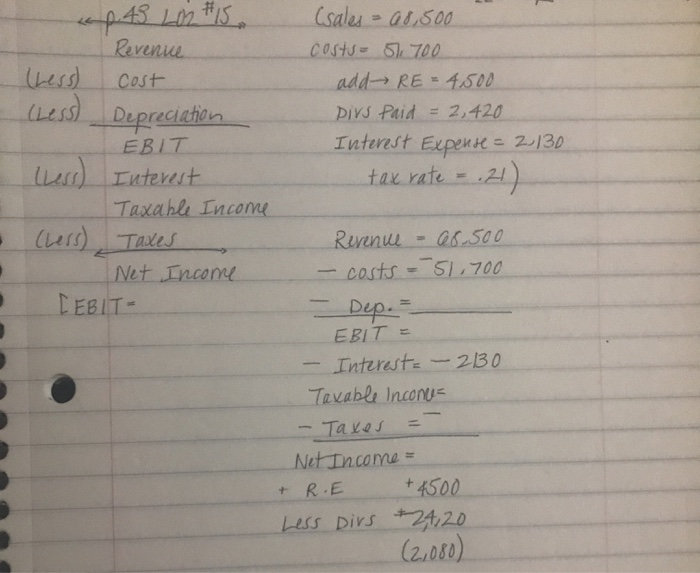 " p.43 LO2 #15.
(sales = 98,500
Revenue
costs = 51,700
(Less) Cost
add → RE = 4,500
(Less) Depreciation
Divs Paid = 2,420
EBIT
Interest Expense = 2,130
(Less) Interest
tax rate = .21)
Taxable Income
(Less) Taxes
Net Income
[EBIT=
Revenue = 98,500
- costs = -51,700
- Dep. =
EBIT =
- Interest = - 2130
Taxable Income=
- Taxes = -
Net Income =
+ R.E +4500
Less Divs 24,20
(2,080)